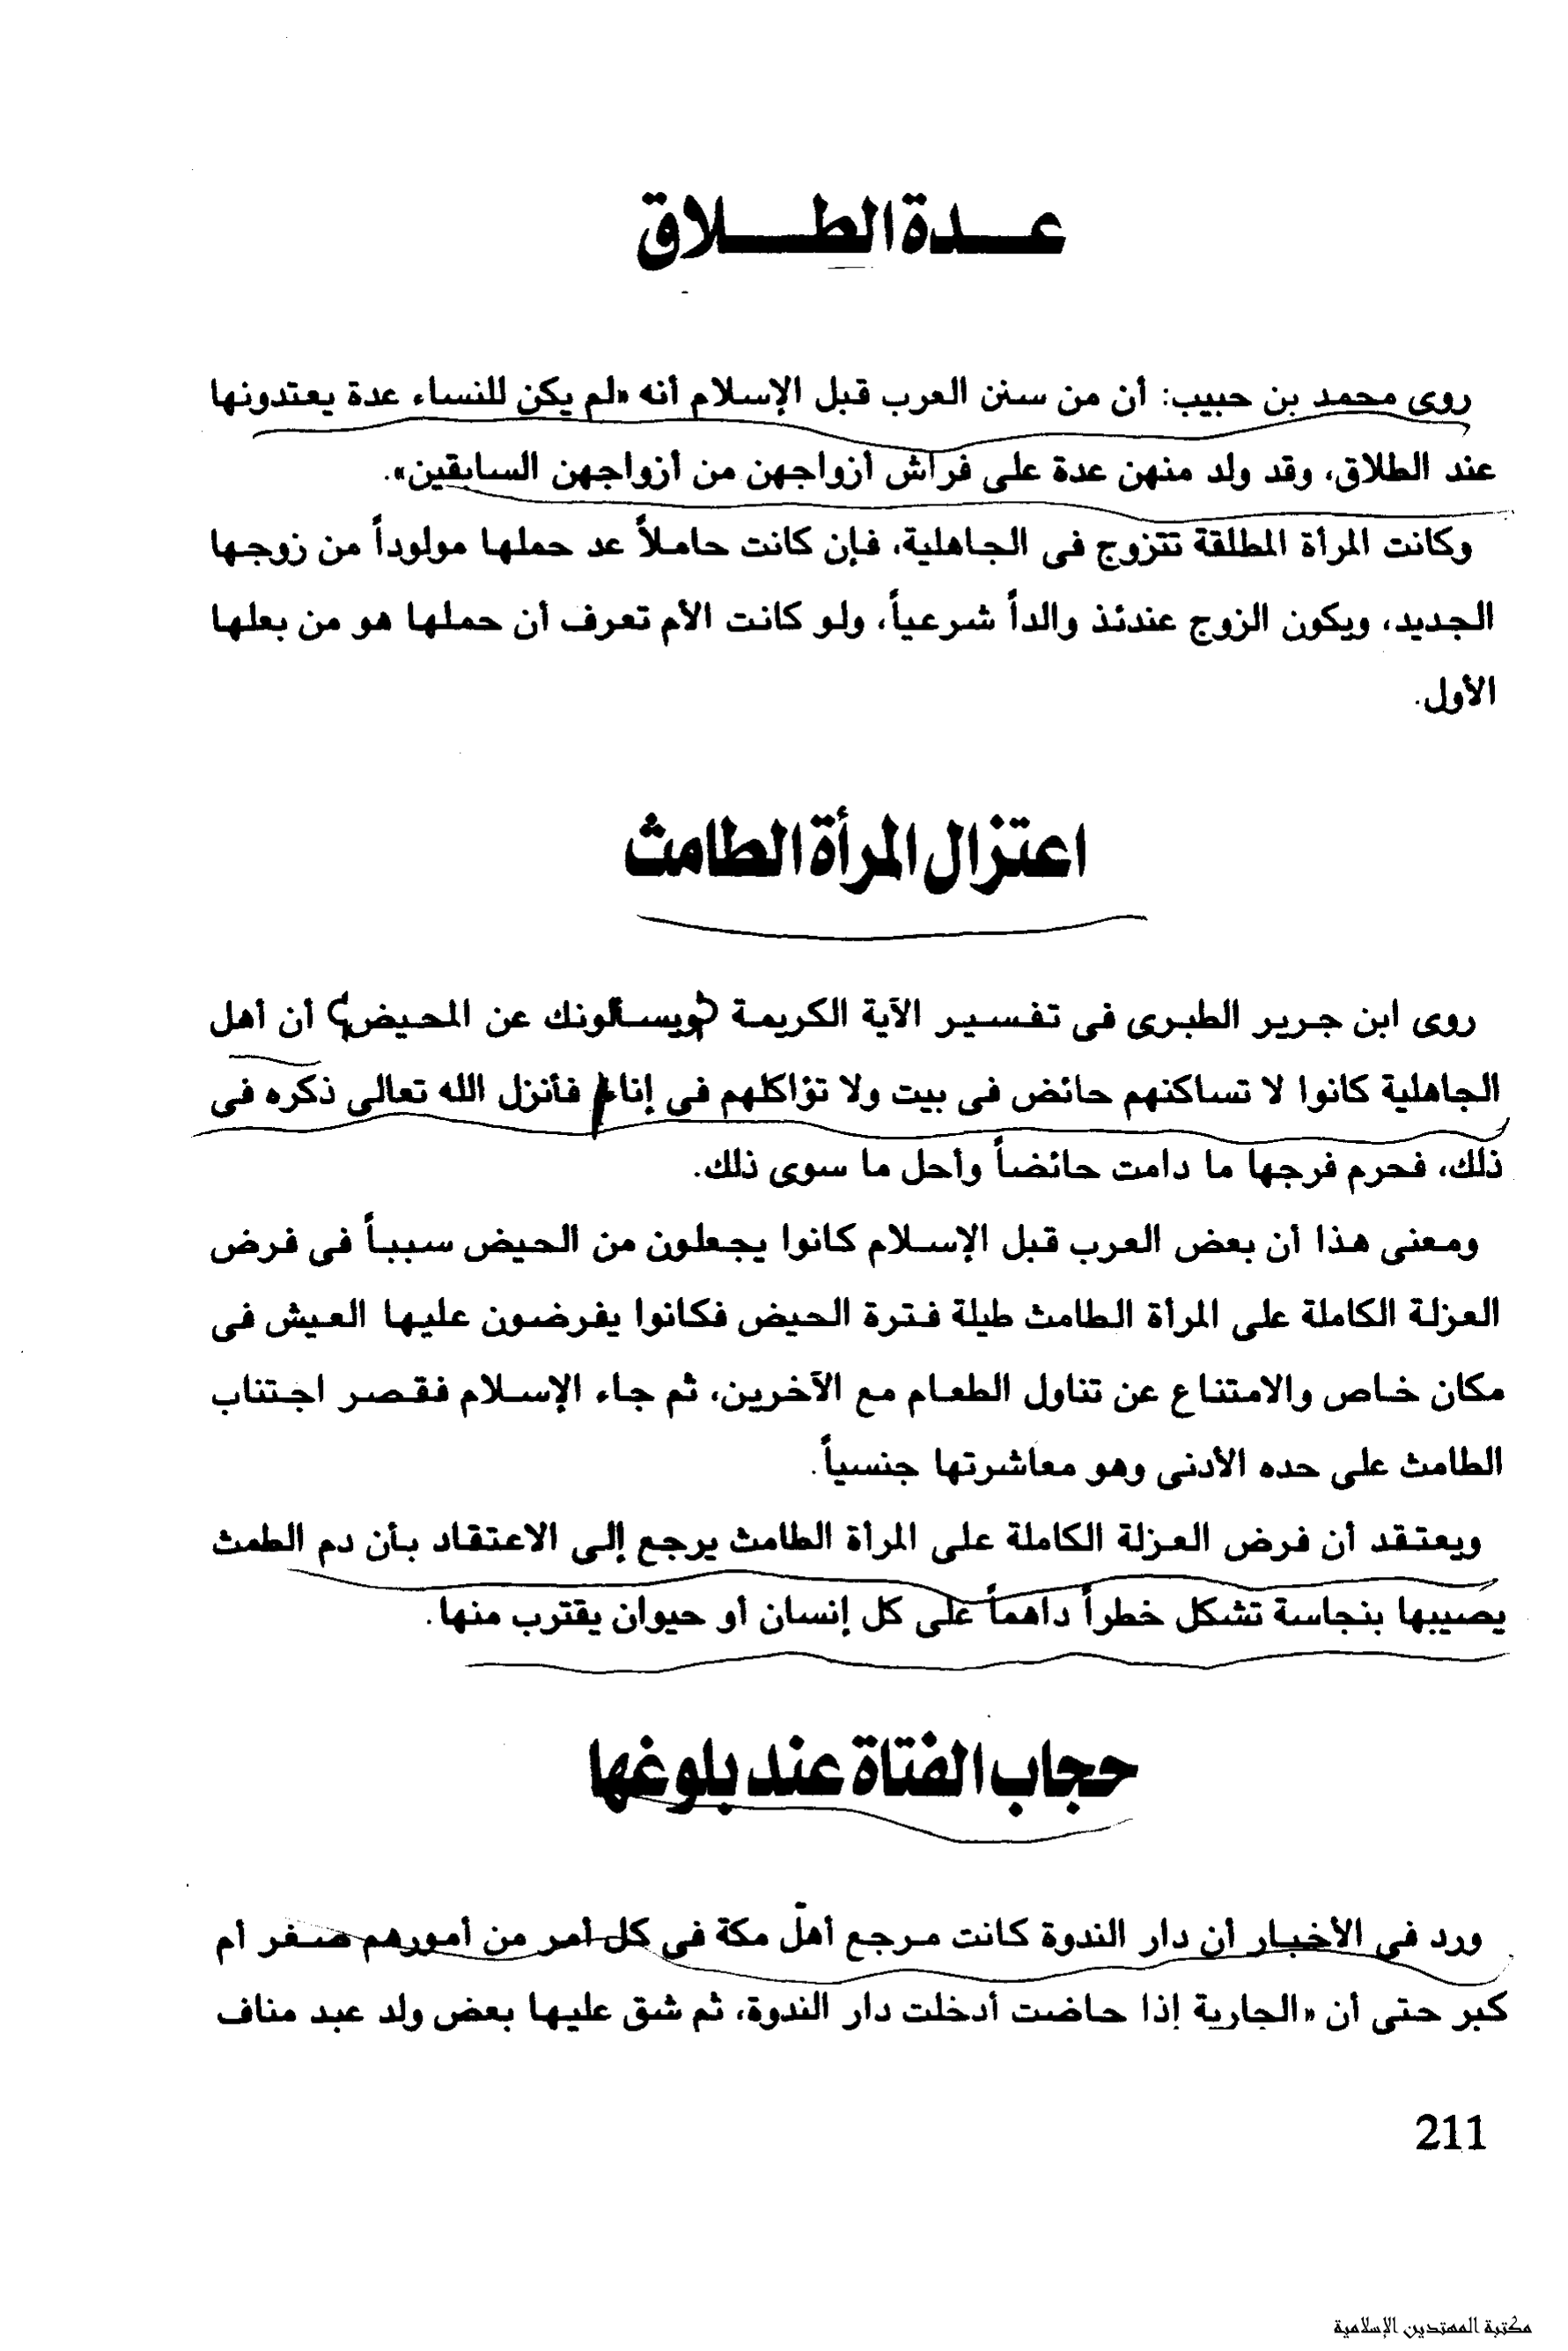 عدة الطلاق
روى محمد بن حبيب: أن من سنن العرب قبل الإسلام أنه «لم يكن للنساء عدة يعتدونها
عند الطلاق، وقد ولد منهن عدة على فراش أزواجهن من أزواجهن السابقين».
وكانت المرأة المطلقة تتزوج فى الجاهلية، فإن كانت حاملاً عد حملها مولوداً من زوجها
الجديد، ويكون الزوج عندئذ والداً شرعياً، ولو كانت الأم تعرف أن حملها هو من بعلها
الأول.
اعتزال المرأة الطامث
روى ابن جرير الطبرى فى تفسير الآية الكريمة (ويسألونك عن المحيض) أن أهل
الجاهلية كانوا لا تساكنهم حائض فى بيت ولا تؤاكلهم فى إناء فأنزل الله تعالى ذكره فى
ذلك، فحرم فرجها ما دامت حائضاً وأحل ما سوى ذلك.
ومعنى هذا أن بعض العرب قبل الإسلام كانوا يجعلون من الحيض سبباً فى فرض
العزلة الكاملة على المرأة الطامث طيلة فترة الحيض فكانوا يفرضون عليها العيش فى
مكان خاص والامتناع عن تناول الطعام مع الآخرين، ثم جاء الإسلام فقصر اجتناب
الطامث على حده الأدنى وهو معاشرتها جنسياً.
ويعتقد أن فرض العزلة الكاملة على المرأة الطامث يرجع إلى الاعتقاد بأن دم الطمث
يصيبها بنجاسة تشكل خطراً داهماً على كل إنسان أو حيوان يقترب منها.
حجاب الفتاة عند بلوغها
ورد فى الأخبار أن دار الندوة كانت مرجع أهل مكة فى كل أمر من أمورهم صغر أم
كبر حتى أن «الجارية إذا حاضت أدخلت دار الندوة، ثم شق عليها بعض ولد عبد مناف
211
مكتبة المهتدين الإسلامية